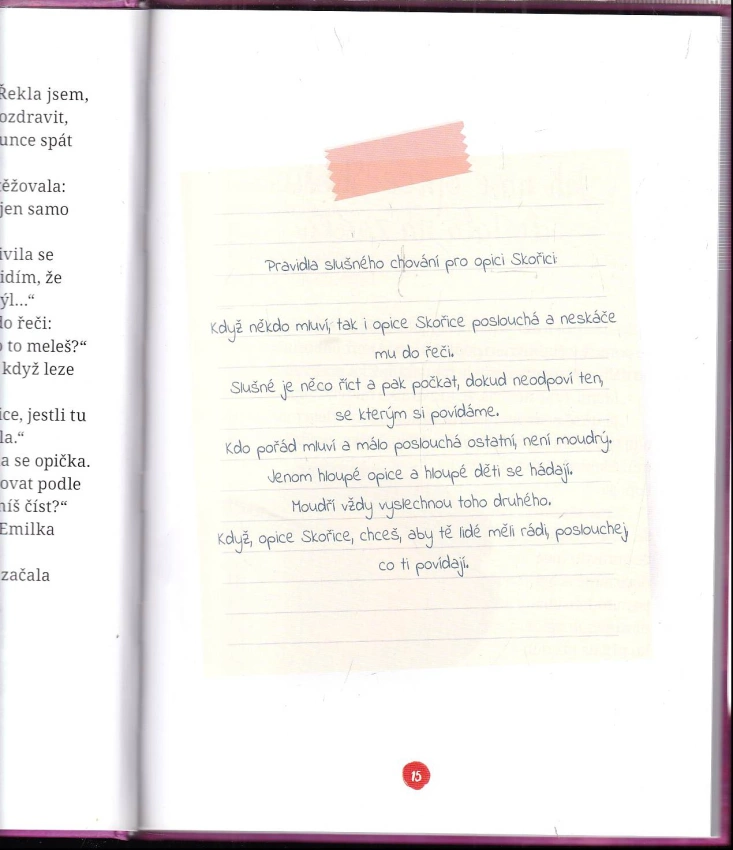 Řekla jsem,
ozdravit,
unce spát
ěžovala:
jen samo
ivila se
idím, že
ýl…“
do řeči:
o to meleš?“
když leze
ice, jestli tu
la.“
a se opička.
ovat podle
níš číst?“
Emilka
začala
Pravidla slušného chování pro opici Skořici:
Když někdo mluví, tak i opice Skořice poslouchá a neskáče
mu do řeči.
Slušné je něco říct a pak počkat, dokud neodpoví ten,
se kterým si povídáme.
Kdo pořád mluví a málo poslouchá ostatní, není moudrý.
Jenom hloupé opice a hloupé děti se hádají.
Moudří vždy vyslechnou toho druhého.
Když, opice Skořice, chceš, aby tě lidé měli rádi, poslouchej,
co ti povídají.
15